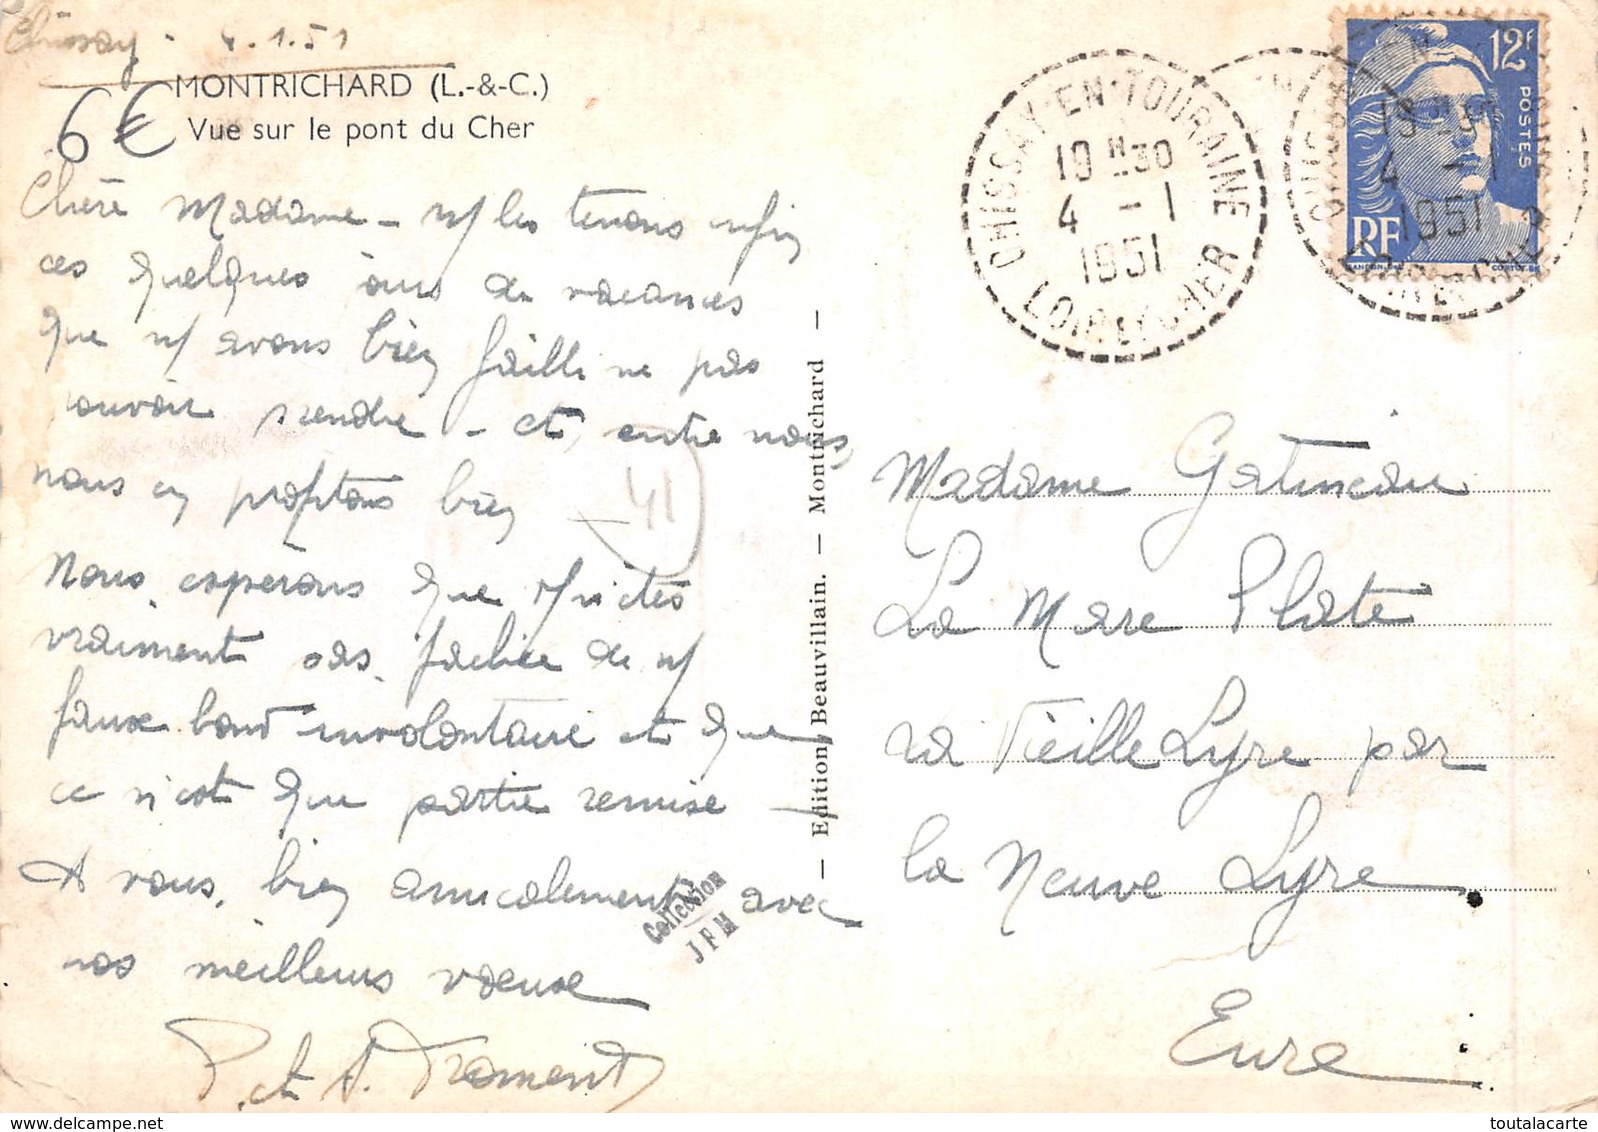 Chissay - 4.1.51
MONTRICHARD (L.-&-C.)
Vue sur le pont du Cher
6€
Chère Madame - n/ les tenons enfin
ces quelques jours de vacances
que n/ avons bien failli ne pas
pouvoir prendre - et entre nous,
nous en profitons bien
41
Nous espérons que n'êtes
vraiment pas fachée de n/
faux bond involontaire et que
ce n'est que partie remise -
A vous, bien amicalement avec
nos meilleurs voeux
P. et A. Froment
Collection
JFM
— Edition Beauvillain. — Montrichard —
CHISSAY-EN-TOURAINE
19H30
4 - 1
1951
LOIR-ET-CHER
12F
POSTES
RF
GANDON
CORTOT
19H30
4 - 1
1951
Madame Gatineau
La Mare Plate
La Vieille Lyre par
la Neuve Lyre
Eure
toutalacarte